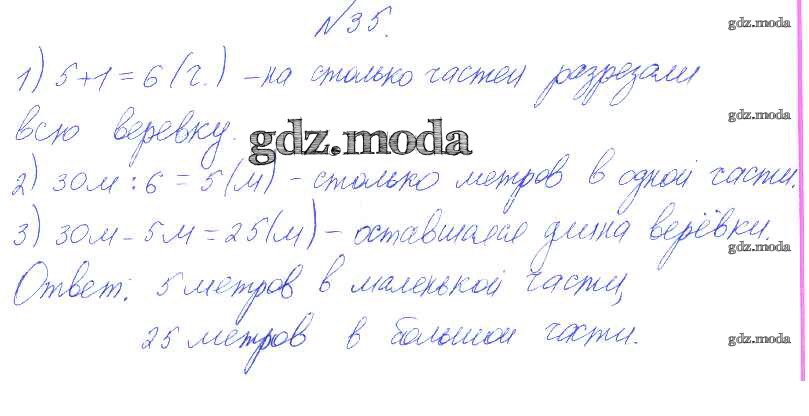 №35.
gdz.moda
1) 5+1=6 (ч.) – на столько частей разрезали
gdz.moda
всю веревку.
gdz.moda
2) 30м : 6 = 5 (м) – столько метров в одной части.
gdz.moda
3) 30м – 5м = 25 (м) – оставшаяся длина верёвки.
gdz.moda
Ответ: 5 метров в маленькой части,
25 метров в большой части.
gdz.moda